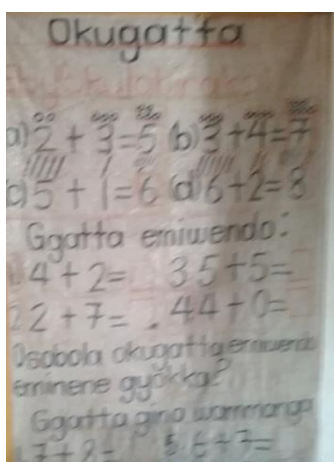 Okugatta
Byokulabirako
a) 2 + 3 = 5 (b) 3 + 4 = 7
c) 5 + 1 = 6 (d) 6 + 2 = 8
Ggatta emiwendo:
4 + 2 = 3 5 + 5 =
2 2 + 7 = . 4 4 + 0 =
Osobola okugatta emiwendo
eminene gyokka?
Ggatta gino wammanga
7 + 2 = 5 6 + 7 =